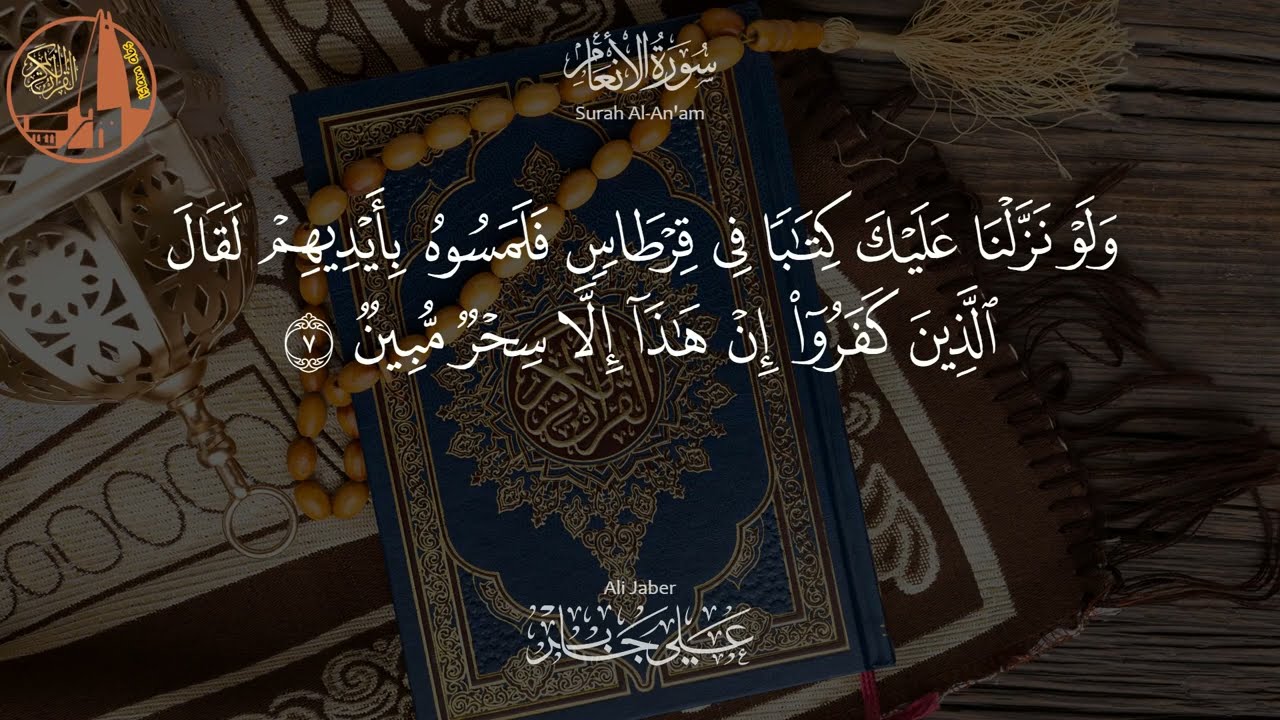 سُورَةُ الأَنْعَامِ
Surah Al-An'am
وَلَوْ نَزَّلْنَا عَلَيْكَ كِتَٰبًا فِى قِرْطَاسٍ فَلَمَسُوهُ بِأَيْدِيهِمْ لَقَالَ
ٱلَّذِينَ كَفَرُوٓا۟ إِنْ هَٰذَآ إِلَّا سِحْرٌ مُّبِينٌ ٧
القرآن الكريم
Ali Jaber
عَلِي جَابِر
القرآن الكريم